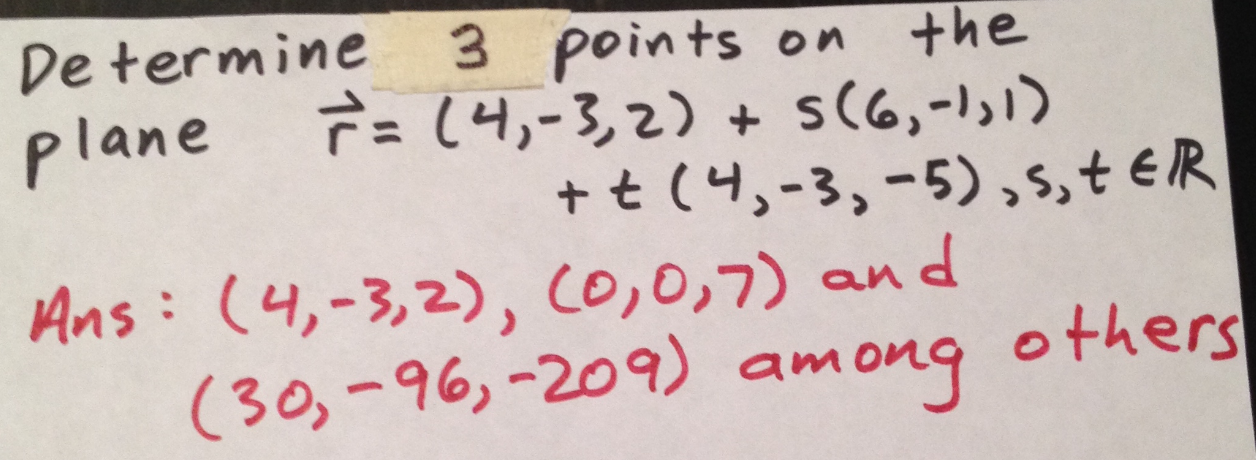 Determine 3 points on the
plane r⃗ = (4,-3,2) + s(6,-1,1)
+ t (4,-3,-5), s,t ∈ ℝ
Ans: (4,-3,2), (0,0,7) and
(30,-96,-209) among others